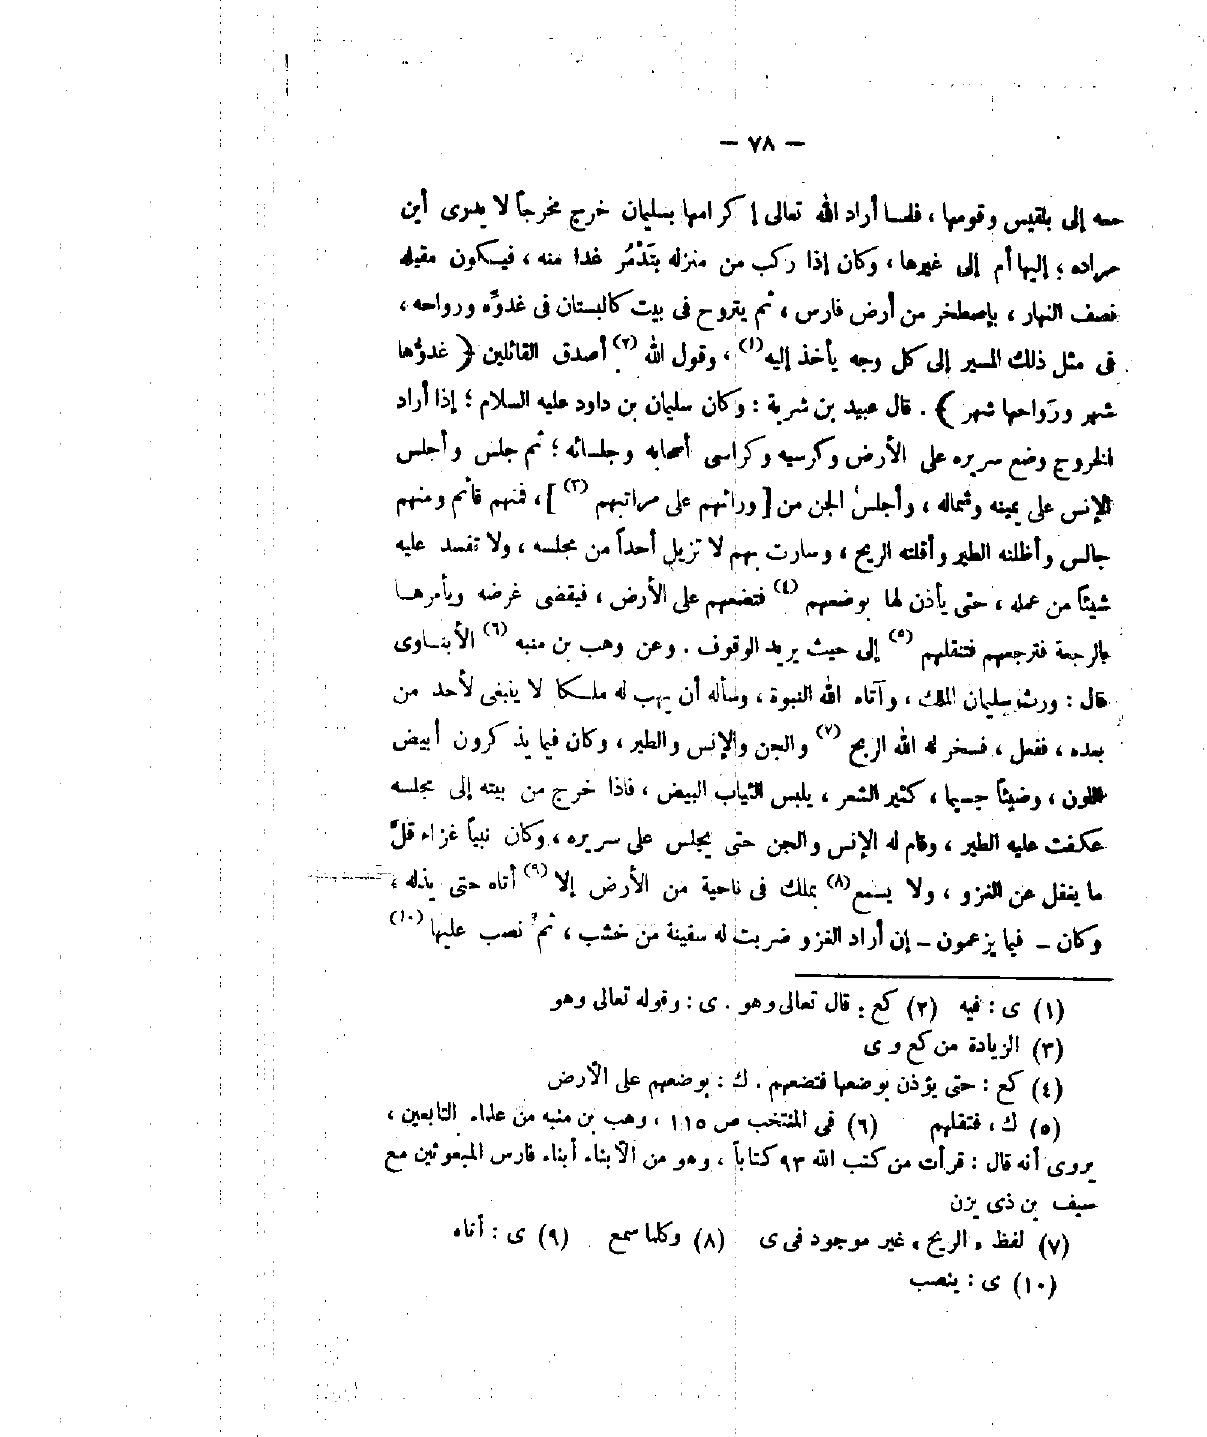 — ٧٨ —
معه إلى بلقيس وقومها ، فلما أراد الله تعالى إكرامها بسليمان خرج مخرجاً لا يدرى أين
مراده ؛ إليها أم إلى غيرها ، وكان إذا ركب من منزله بتَدْمُر غدا منه ، فيكون مقيله
نصف النهار ، بإصطخر من أرض فارس ، ثم يتروح فى بيت كالبستان فى غدوِّه ورواحه ،
فى مثل ذلك المسير إلى كل وجه يأخذ إليه (١) ، وقول الله (٢) أصدق القائلين ﴿ غدوُّها
شهر ورَواحها شهر ﴾ . قال عبيد بن شرية : وكان سليمان بن داود عليه السلام ؛ إذا أراد
الخروج وضع سريره على الأرض وكرسيه وكراسى أصحابه وجلسائه ؛ ثم جلس وأجلس
الإنس على يمينه وشماله ، وأجلس الجن من [ ورائهم على مراتبهم (٣) ] ، فمنهم قائم ومنهم
جالس وأظلته الطير وأقلته الريح ، وسارت بهم لا تزيل أحداً من مجلسه ، ولا تفسد عليه
شيئاً من عمله ، حتى يأذن لها بوضعهم (٤) فتضعهم على الأرض ، فيقضى غرضه ويأمرها
بالرجعة فترجعهم فتنقلهم (٥) إلى حيث يريد الوقوف . وعن وهب بن منبه (٦) الأبناوى
قال : ورث سليمان الملك ، وآتاه الله النبوة ، وسأله أن يهب له ملكا لا ينبغى لأحد من
بعده ، ففعل ، فسخر له الله الريح (٧) والجن والإنس والطير ، وكان فيما يذكرون أبيض
اللون ، وضيئاً جسيما ، كثير الشعر ، يلبس الثياب البيض ، فاذا خرج من بيته إلى مجلسه
عكفت عليه الطير ، وقام له الإنس والجن حتى يجلس على سريره ، وكان نبياً غزاء قلَّ
ما يغفل عن الغزو ، ولا يسمع (٨) بملك فى ناحية من الأرض إلا (٩) أتاه حتى يذله ،
وكان – فيما يزعمون – إن أراد الغزو ضربت له سفينة من خشب ، ثم نصب عليها (١٠)
(١) ى : فيه (٢) كع : قال تعالى وهو . ى : وقوله تعالى وهو
(٣) الزيادة من كع و ى
(٤) كع : حتى يؤذن بوضعها فتضعهم . ك : بوضعهم على الأرض
(٥) ك ، فتقلهم (٦) فى المنتخب ص ١١٥ ، وهب بن منبه من علماء التابعين ،
يروى أنه قال : قرأت من كتب الله ٩٣ كتاباً ، وهو من الأبناء أبناء فارس المبعوثين مع
سيف بن ذى يزن
(٧) لفظ « الريح » غير موجود فى ى (٨) وكلما سمع (٩) ى : أتاه
(١٠) ى : ينصب